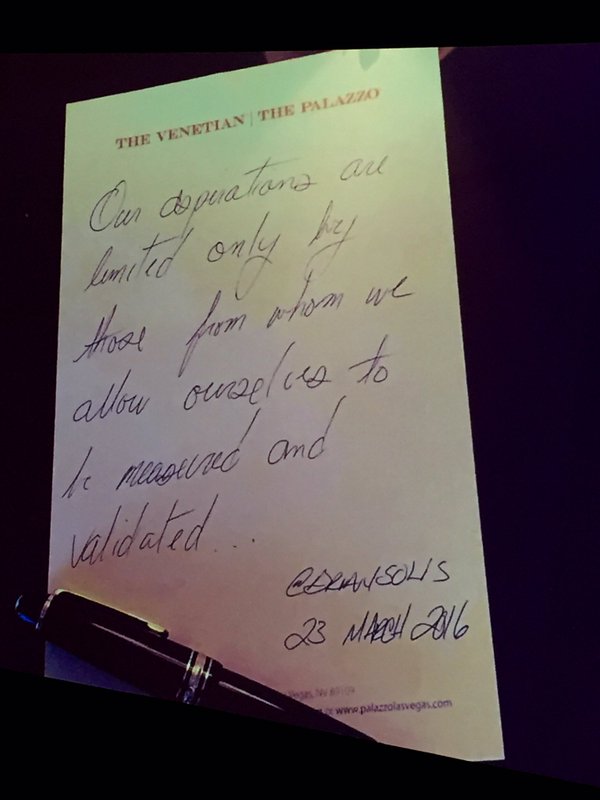 THE VENETIAN | THE PALAZZO
Our aspirations are
limited only by
those from whom we
allow ourselves to
be measured and
validated...
@BRIANSOLIS
23 MARCH 2016
Vegas, NV 89109
www.palazzolasvegas.com